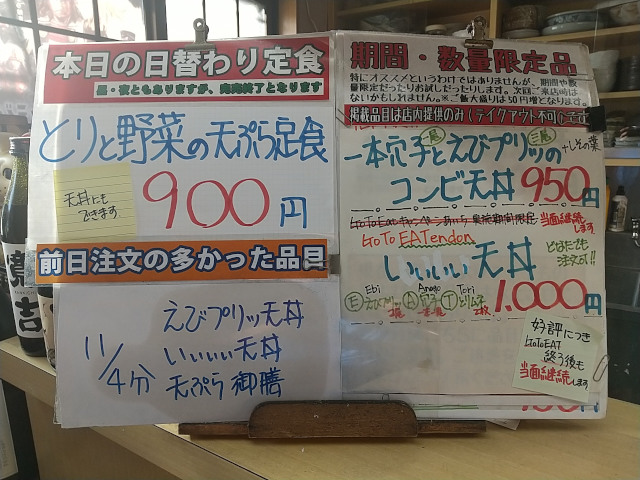 本日の日替わり定食
昼・夜ともありますが、完売終了となります
とりと野菜の天ぷら定食
天丼にも
できます
900円
前日注文の多かった品目
11/4分
えびプリッ天丼
いいいい天丼
天ぷら御膳
期間・数量限定品
特にオススメというわけではありませんが、期間や数
量限定だったりお試しだったりします。次回ご来店時は
ないかもしれません。※ご飯大盛りは50円増となります。
掲載品目は店内提供のみ(テイクアウト不可)です
一本穴子とえびプリッの
+しその葉
コンビ天丼 950円
GoToEatキャンペーンあいち 食事券期間限定 当面継続します
GoTo EATendon
どなたでも
注文可!!
いいいい天丼
Ebi Anago Tori
E えびプリッ A 穴子 T とりムネ
2枚
1.000円
好評につき
GoToEAT
終了後も
当面継続します